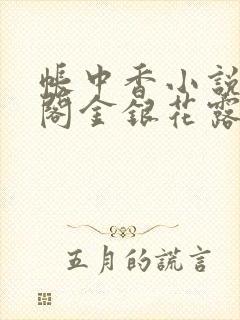 帳中香小說
閣金銀花露
五月的謊言